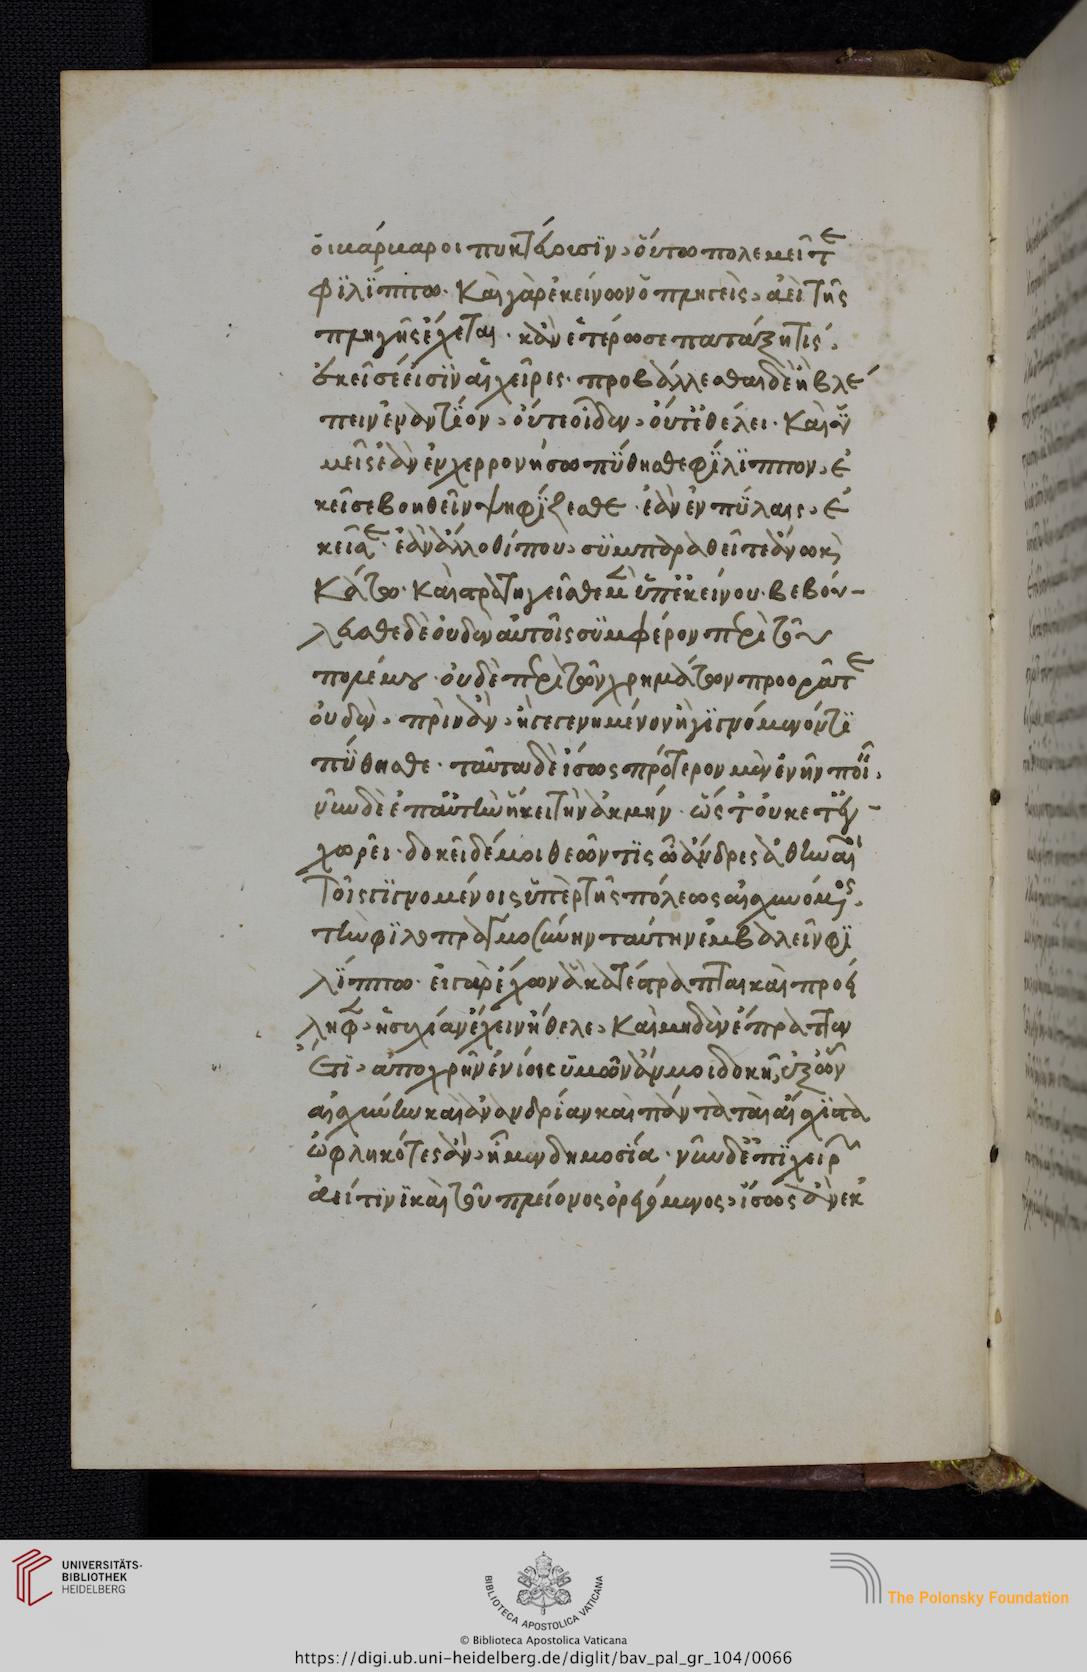 οἱ βάρβαροι πυκτεύουσιν, οὕτω πολεμεῖτε
φιλίππω. καὶ γὰρ ἐκείνων ὁ πληγεὶς, ἀεὶ τῆς
πληγῆς ἔχεται. κἂν ἑτέρωσε πατάξη τίς,
ἐκεῖσέ εἰσιν αἱ χεῖρες. προβάλλεσθαι δὲ ἢ βλέ
πειν ἐναντίον, οὔτε οἶδεν, οὔτ' ἐθέλει. καὶ ὑ
μεῖς ἐὰν ἐν χερρονήσω πύθησθε φίλιππον, ἐ
κεῖσε βοηθεῖν ψηφίζεσθε. ἐὰν ἐν πύλαις, ἐ
κεῖσε. ἐὰν ἄλλοθί που, συμπαραθεῖτε ἄνω καὶ
κάτω. καὶ στρατηγεῖσθε μὲν ὑπ' ἐκείνου. βεβού-
λευσθε δὲ οὐδὲν αὐτοῖς συμφέρον περὶ τοῦ
πολέμου. οὐδὲ περὶ τῶν χρημάτων προορᾶτε
οὐδὲν, πρὶν ἂν, ἢ γεγενημένον ἢ γιγνόμενόν τι
πύθησθε. ταῦτα δὲ ἴσως πρότερον μὲν ἐνῆν ποιεῖν,
νῦν δὲ ἐπ' αὐτὴν ἥκει τὴν ἀκμήν. ὥστ' οὐκέτ' ἐγ-
χωρεῖ. δοκεῖ δέ μοι θεῶν τὶς ὦ ἄνδρες ἀθηναῖοι
τοῖς γιγνομένοις ὑπὲρ τῆς πόλεως αἰσχυνόμενος,
τὴν φιλοπραγμοσύνην ταύτην ἐμβαλεῖν φι
λίππω. εἰ γὰρ ἔχων ἃ κατέστραπται καὶ προεί
ληφεν, ἡσυχίαν ἔχειν ἤθελε, καὶ μηδὲν ἔπραττεν
ἔτι, ἀποχρῆν ἐνίοις ὑμῶν ἄν μοι δοκεῖ, ἐξ ὧν
αἰσχύνην καὶ ἀνανδρίαν καὶ πάντα τὰ αἴσχιστα
ὠφληκότες ἂν, ἦμεν δημοσία. νῦν δ' ἐπιχειρῶν
ἀεί τινι καὶ τοῦ πλείονος ὀρεγόμενος, ἴσως ἂν ἐκ
UNIVERSITÄTS-
BIBLIOTHEK
HEIDELBERG
BIBLIOTECA APOSTOLICA VATICANA
The Polonsky Foundation
© Biblioteca Apostolica Vaticana
https://digi.ub.uni-heidelberg.de/diglit/bav_pal_gr_104/0066